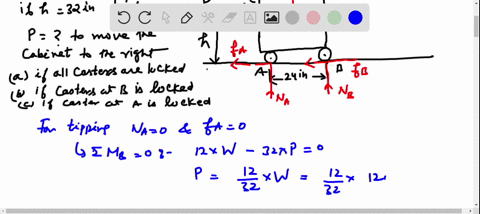 if h = 32 in
P = ? to move the
Cabinet to the right
(a) if all Casters are locked
(b) if Casters at B is locked
(c) if caster at A is locked
h
fA
A
24 in
B
fB
NA
NB
For tipping NA = 0 & fA = 0
↳ Σ MB = 0 :- 12 × W - 32 × P = 0
P = 12/32 × W = 12/32 × 12